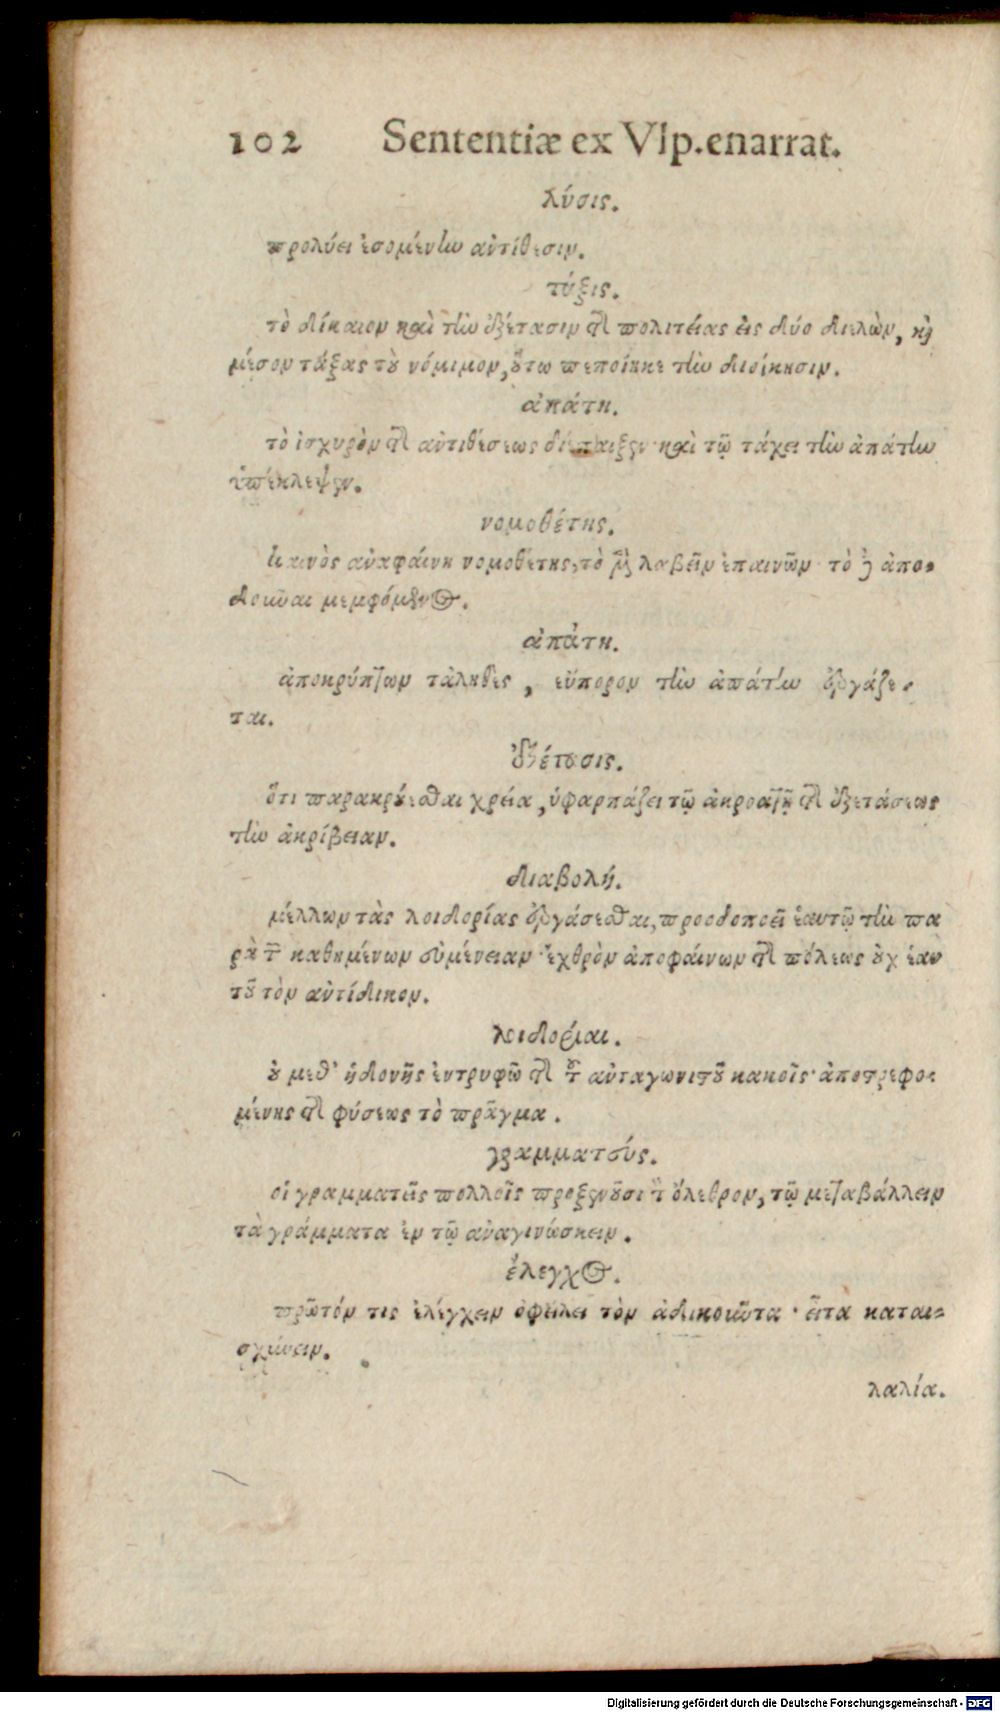 102 Sententiæ ex Vlp.enarrat.
λύσις.
προλύει ἐσομένην ἀντίθεσιν.
τάξις.
τὸ δίκαιον καὶ τὴν ἐξέτασιν τῆς πολιτείας εἰς δύο διελὼν, καὶ
μέσον τάξας τὸ νόμιμον, οὕτω πεποίηκε τὴν διοίκησιν.
ἀπάτη.
τὸ ἰσχυρὸν τῆς ἀντιθέσεως καὶ τῷ τάχει τὴν ἀπάτην
ὑπέκλεψεν.
νομοθέτης.
καινὸς ἀναφαίνῃ νομοθέτης, τὸ μὲν λαβεῖν ἐπαινῶν· τὸ δὲ ἀπο-
δοῦναι μεμφόμενος.
ἀπάτη.
ἀποκρύπτων τἀληθὲς, εὔπορον τὴν ἀπάτην ἐργάζε-
ται.
ἐξέτασις.
ὅτι παρακρούεσθαι χρεία, ὑφαρπάζει τῷ ἀκροατῇ τῆς ἐξετάσεως
τὴν ἀκρίβειαν.
διαβολή.
μέλλων τὰς λοιδορίας ἐργάσεσθαι, προοδοποιεῖ ἑαυτῷ τὴν πα
ρὰ τῶν καθημένων εὐμένειαν· ἐχθρὸν ἀποφαίνων τῆς πόλεως οὐχ ἑαυ
τοῦ τὸν ἀντίδικον.
λοιδορίαι.
οὐ μεθ' ἡδονῆς ἐντρυφῶ τοῖς τοῦ ἀνταγωνιστοῦ κακοῖς· ἀποστρεφο-
μένης τῆς φύσεως τὸ πρᾶγμα.
γραμματεύς.
οἱ γραμματεῖς πολλοῖς προξενοῦσι τὸν ὄλεθρον, τῷ μεταβάλλειν
τὰ γράμματα ἐν τῷ ἀναγινώσκειν.
ἔλεγχος.
πρῶτόν τις ἐλέγχειν ὀφείλει τὸν ἀδικοῦντα· εἶτα καται-
σχύνειν.
λαλία.
Digitalisierung gefördert durch die Deutsche Forschungsgemeinschaft - DFG